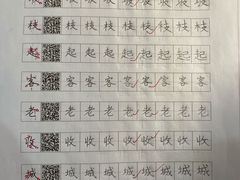 枝 枝 枝 枝 枝 枝 枝
起 起 起 起 起 起 起
客 客 客 客 客 客 客
老 老 老 老 老 老 老
收 收 收 收 收 收 收
城 城 城 城 城 城 城